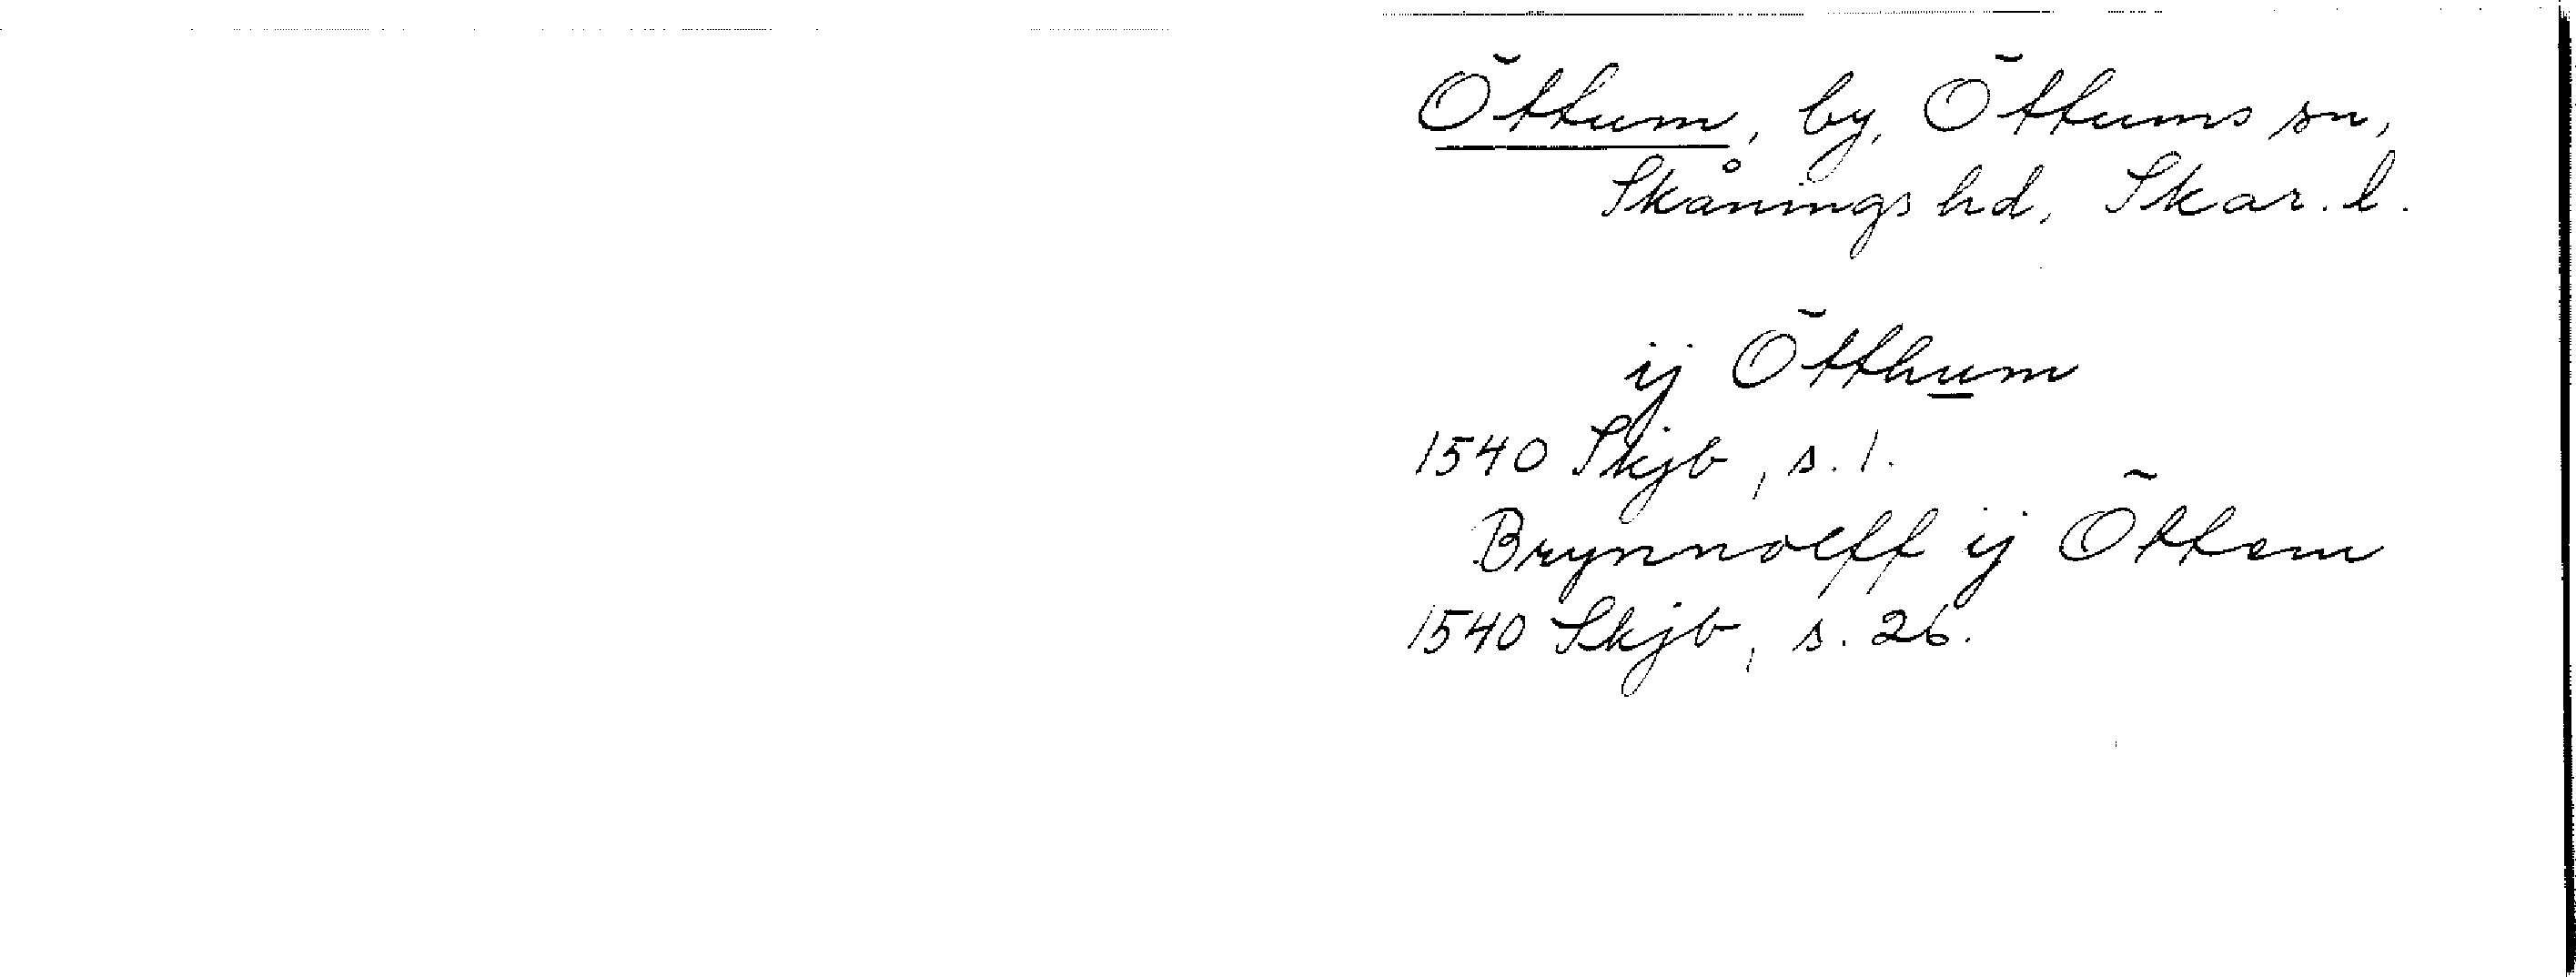 Öttum, by, Öttums sn,
Skånings hd, Skar. l.
ij Ötthum
1540 Skjb, s. 1.
Brynnolff ij Öttom
1540 Skjb, s. 26.